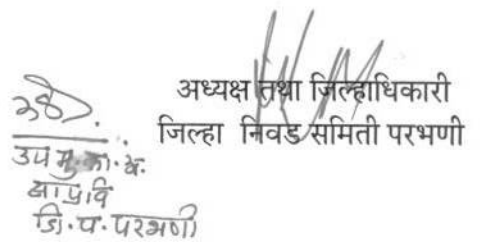 अध्यक्ष तथा जिल्हाधिकारी
जिल्हा निवड समिती परभणी
उप मु.का.अ.
साप्रवि
जि.प.परभणी